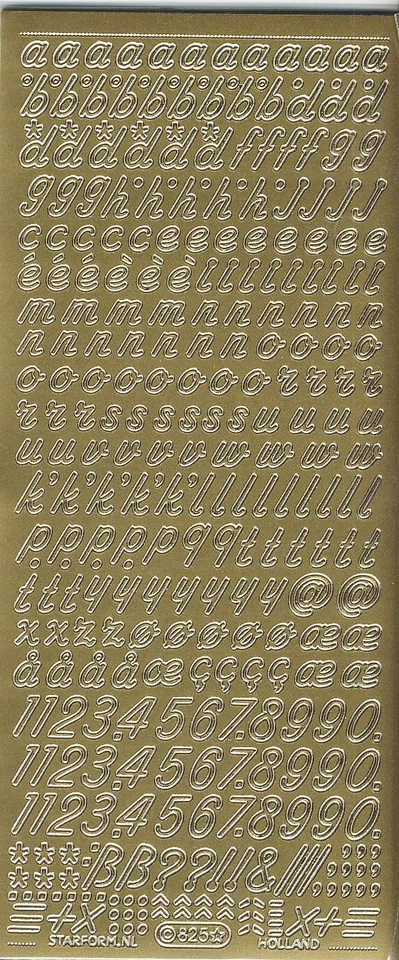 a a a a a a a a a a a a a
b b b b b b b b b d d d
d d d d d d d f f f f g g
g g g h h h h h h J J J J
c c c c c e e e e e e e e
é é é è è è i i i i i i i i i
m m m m m n n n n n n
n n n n n n n n n o o o o
o o o o o o o o o r r r r
r r r s s s s s s u u u u u
u u v v v v v w w w w w
k k k k k l l l l l l l l l
p p p p p q q t t t t t t
t t t y y y y y y y y @ @
x x z z ø ø ø ø ø ø æ æ
å å å å œ ç ç ç ç æ æ
1123.4567.8990.
1123.4567.8990.
1123.4567.8990.
STARFORM.NL ©825☆ HOLLAND